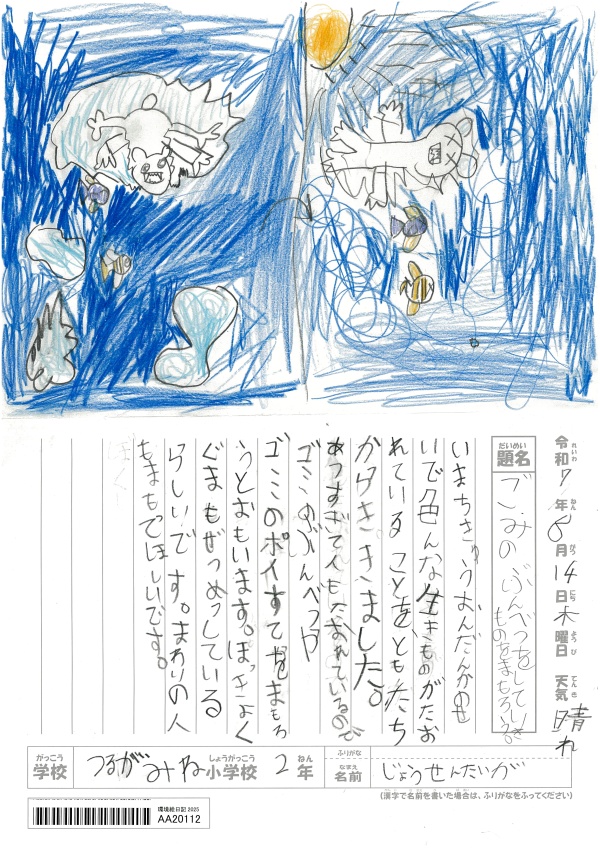 令和7年8月14日木曜日 天気 晴れ
れいわ ねん がつ にち ようび てんき
だいめい
題名
ごみのぶんべつをしていきものをまもろう。
いまちきゅうおんだんかのせ
いで色んな生きものがたお
れていることをともたち
からききました。
あつすぎて人もたおれているので
ゴミのぶんべつや
ゴミのポイすてをまもろ
うとおもいます。ほっきょく
ぐまもぜつめつしている
らしいです。まわりの人
もまもてほしいです。
がっこう しょうがっこう ねん
学校 つるがみね小学校 2年
ふりがな
なまえ
名前 じょうせんたいが
(漢字で名前を書いた場合は、ふりがなをふってください)
環境絵日記 2025
AA20112